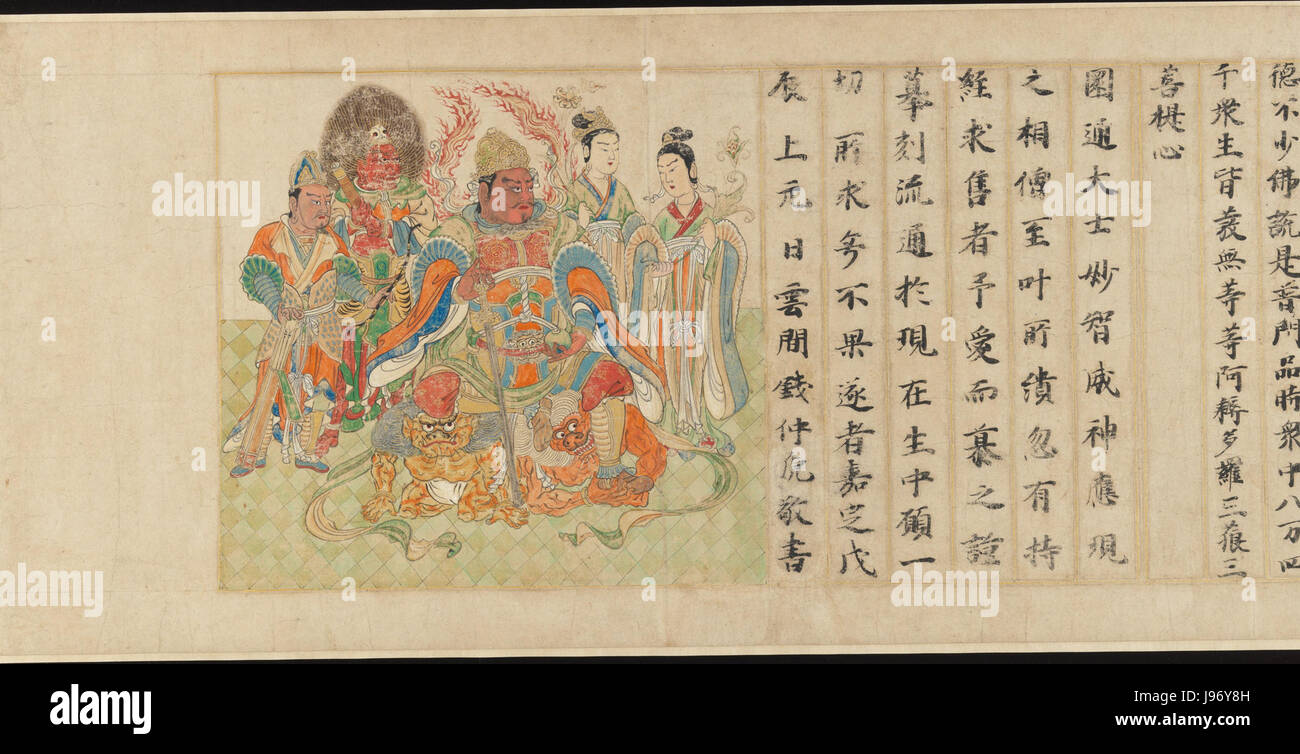 德不少佛說是普門品時衆中八万四
千衆生皆發無等等阿耨多羅三藐三
菩提心
圓通大士妙智威神應現
之相傳至叶所繢忽有持
經求售者予愛而慕之謹
摹刻流通於現在生中願一
切所求无不果遂者嘉定戊
辰上元日雲間錢仲虎敬書
alamy
alamy stock photo
J96Y8H
www.alamy.com